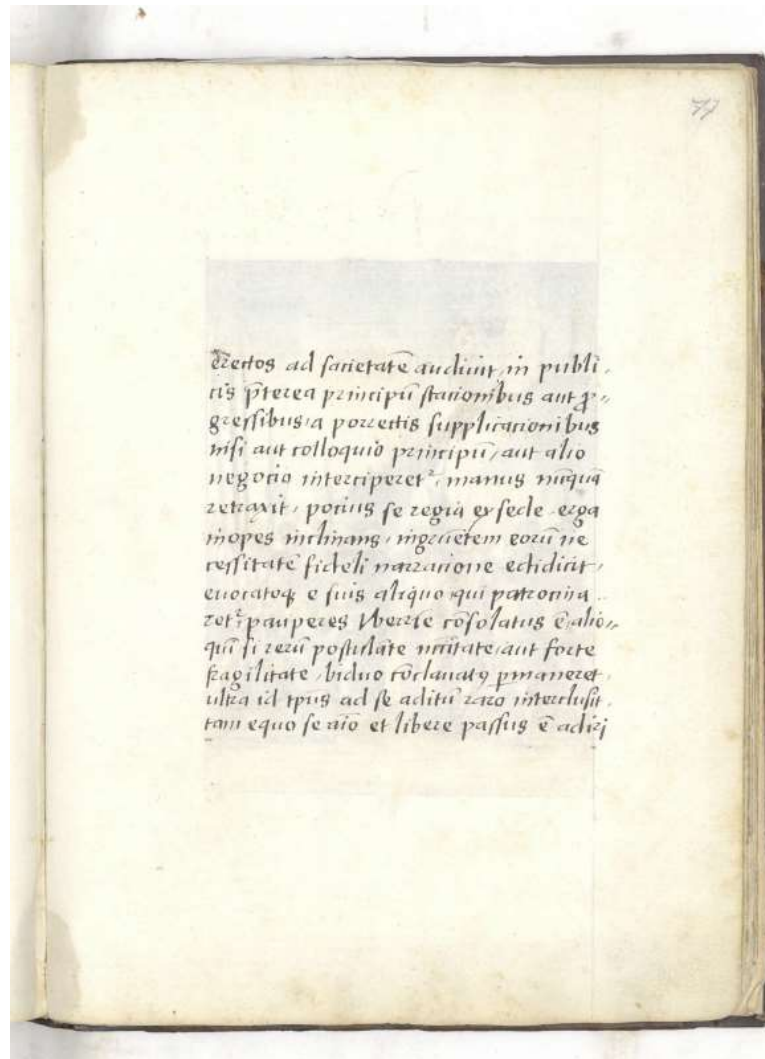 77
erectos ad sacietatē audiuit, in publi,
cis p̄terea principū stacionibus aut ꝓ,,
gressibus, a porrectis supplicacionibus
nisi aut colloquio principū, aut alio
negocio interciperet², manus nūquā
retraxit, pocius se regia ex sede erga
inopes inclinans, ingruētem eorū ne
cessitatē fideli narracione edidicit,
euocatoq; e suis aliquo, qui patrocina
ret², pauperes libere cōsolatus ē, alio,,
qui si rerū postulāte nccitate, aut forte
fragilitate, biduo cōclauatꝰ p̄maneret,
ultra id tp̄us ad se aditū raro interclusit,
tam equo se aīo et libere passus ē adiri